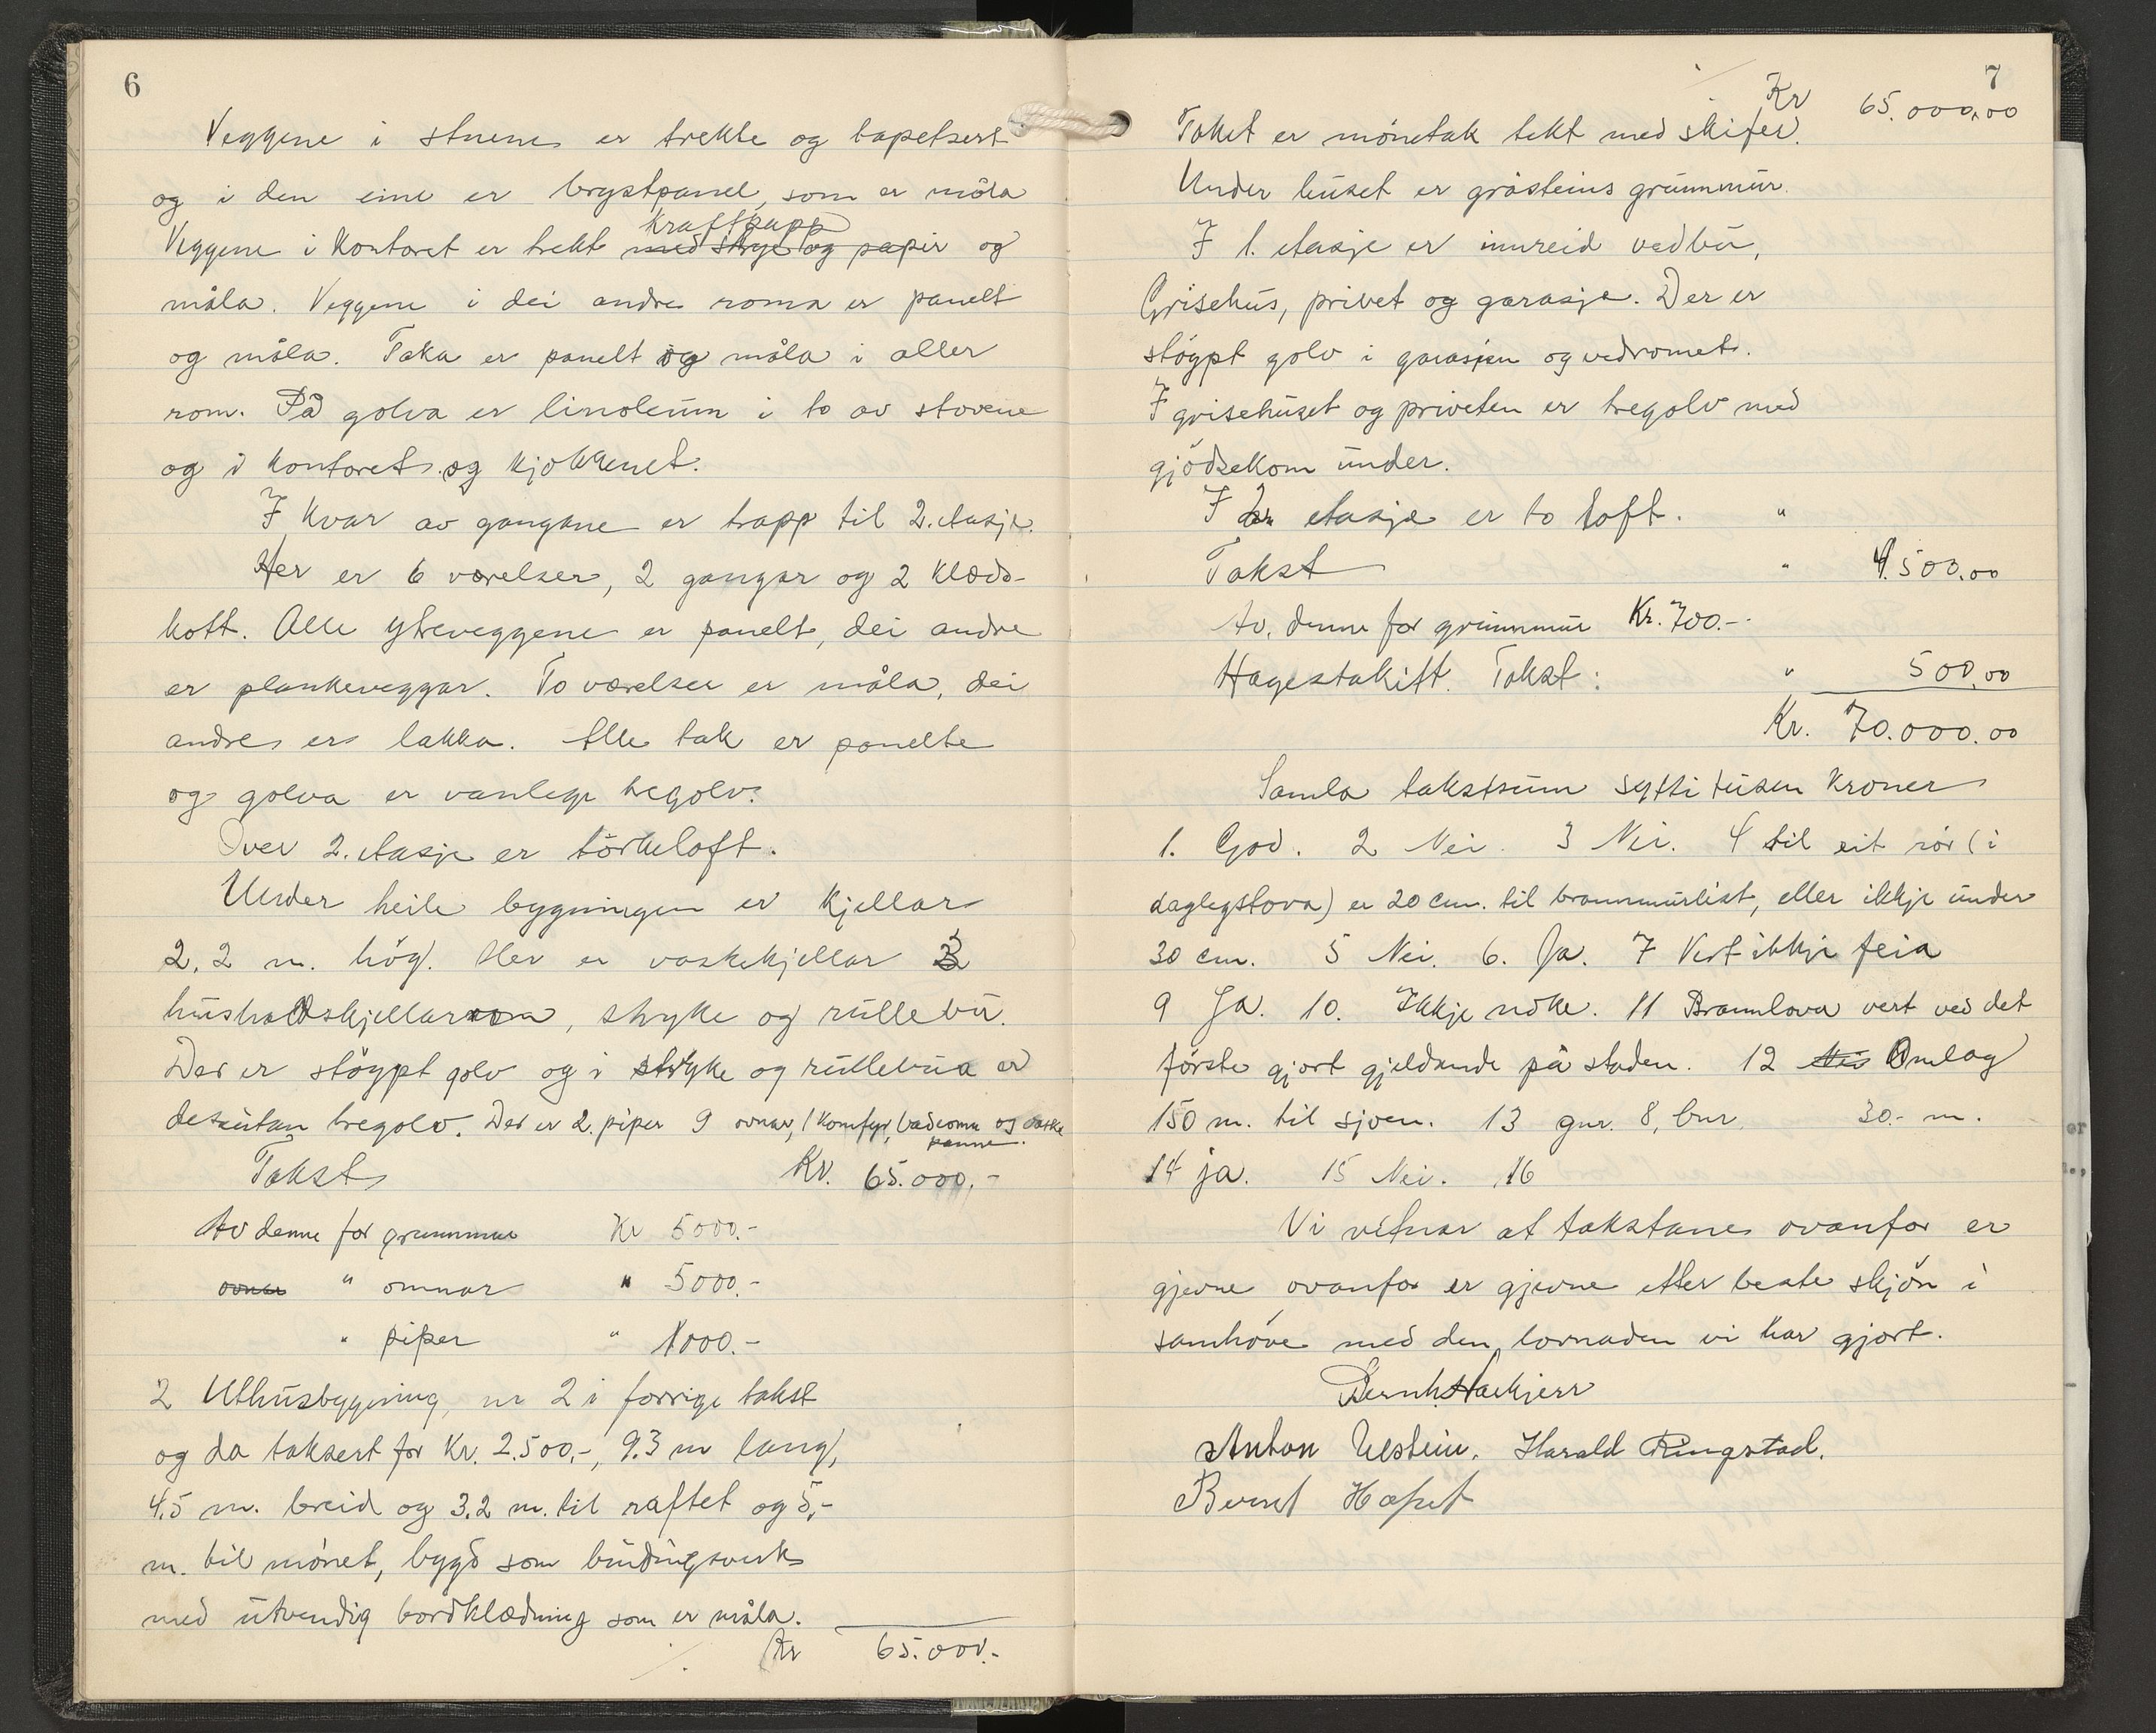 6
Veggene i stuene er trekte og tapetsert
og i den eine er brystpanel, som er måla
kraftpapp
Veggene i kontoret er trekt med strye og papir og
måla. Veggene i dei andre roma er panelt
og måla. Taka er panelt og måla i aller
rom. På golva er linoleum i to av stovene
og i kontoret og kjøkkenet.
I kvar av gangane er trapp til 2. etasje.
Her er 6 værelser, 2 gangar og 2 klæds-
kott. Alle ytreveggene er panelt, dei andre
er plankeveggar. To værelser er måla, dei
andre er lakka. Alle tak er panelte
og golva er vanlege tregolv.
Over 2. etasje er törkeloft.
Under heile bygningen er kjellar
2,2 m. hög. Her er vaskekjellar 3
husholdskjellarrom, stryke og rüllebu.
Der er stöypt golv og i stryke og rüllebua er
desutan tregolv. Der er 2. piper 9 ovnar, 1 komfyr, badeomn og vaske
panne.
Takst Kr. 65.000.-
Av denne for grunnmur Kr 5000.-
ovnar " omnar " 5000.-
" piper " 1000.-
2 Uthusbygning, nr 2 i forrige takst
og da taksert for Kr. 2.500.-, 9.3 m lang,
4,5 m. breid og 3,2 m. til raftet og 5,-
m. til mönet, bygd som bindingsverk
med utvendig bordklædning som er måla.
Kr 65.000.-
7
Kr 65.000,00
Taket er mönetak tekt med skifer.
Under huset er gråsteins grunnmur.
I 1. etasje er innreid vedbu,
Grisehus, privet og garasje. Der er
stöypt golv i garasjen og vedromet.
I grisehuset og priveten er tregolv med
gjödsekom under.
I 2. etasje er to loft. "
Takst " 4.500,00
Av. denne for grunnmur Kr. 700.-
Hagestakitt. Takst: " 500,00
Kr. 70.000.00
Samla takstsum sytti tusen kroner
1. God. 2 Nei. 3 Nei. 4 til eit rör (i
daglegstova) er 20 cm. til brannmurlist, eller ikkje under
30 cm. 5 Nei. 6. Ja. 7 Vert ikkje feia
9 Ja. 10. Ikkje noke. 11 Brannlova vert ved det
förste gjort gjeldande på staden. 12 Nei Omlag
150 m. til sjøen. 13 gnr. 8, bnr. 30.- m.
14 ja. 15 Nei. 16
Vi vitnar at takstane ovanfor er
gjevne ovanfor er gjevne etter beste skjön i
samhöve med den lovnaden vi har gjort.
Anton Ulstein. Harald Ringstad.